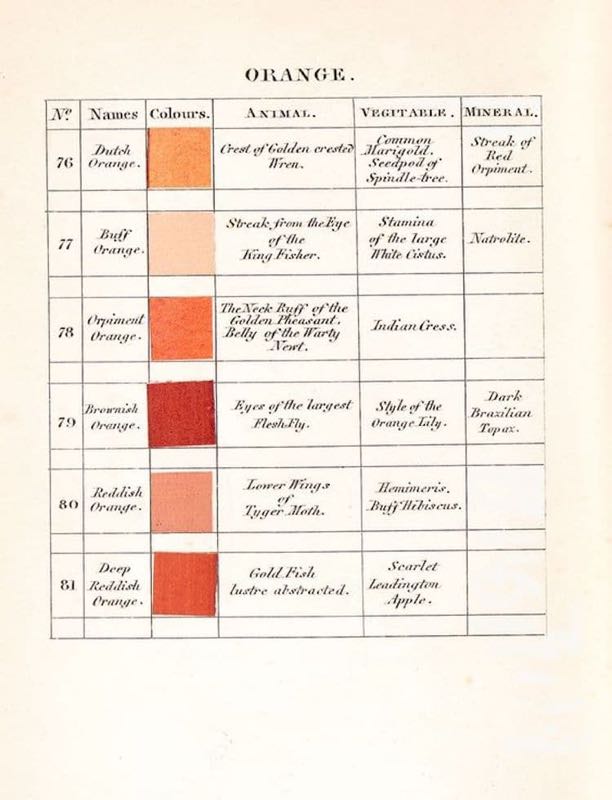 ORANGE.
Nº. Names Colours. ANIMAL. VEGITABLE. MINERAL.
76
Dutch
Orange.
Crest of Golden crested
Wren.
Common
Marigold.
Seedpod of
Spindle-tree.
Streak of
Red
Orpiment.
77
Buff
Orange.
Streak from the Eye
of the
King Fisher.
Stamina
of the large
White Cistus.
Natrolite.
78
Orpiment
Orange.
The Neck Ruff of the
Golden Pheasant.
Belly of the Warty
Newt.
Indian Cress.
79
Brownish
Orange.
Eyes of the largest
Flesh Fly.
Style of the
Orange Lily.
Dark
Brazilian
Topax.
80
Reddish
Orange.
Lower Wings
of
Tyger Moth.
Hemimeris.
Buff Hibiscus.
81
Deep
Reddish
Orange.
Gold Fish
lustre abstracted.
Scarlet
Leadington
Apple.